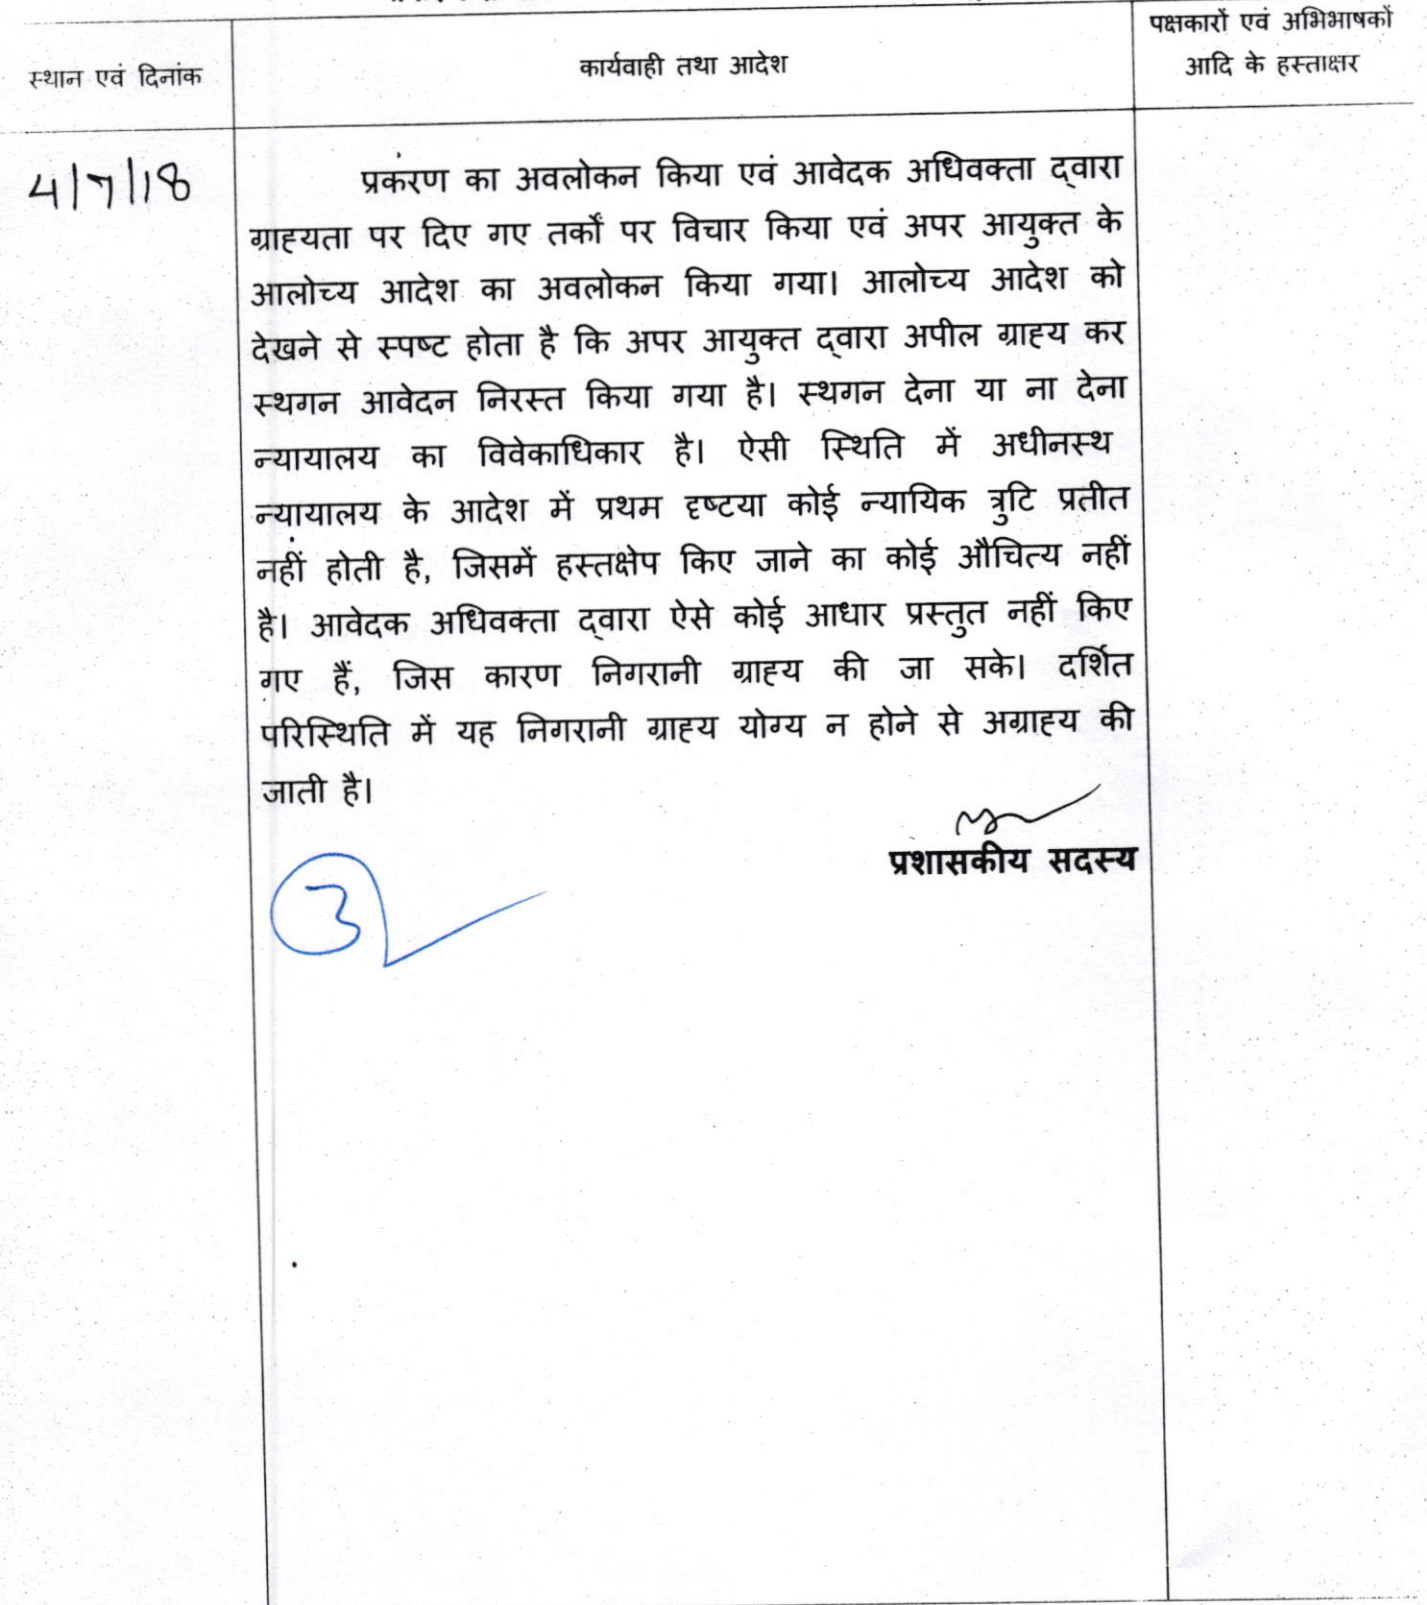 स्थान एवं दिनांक
कार्यवाही तथा आदेश
पक्षकारों एवं अभिभाषकों
आदि के हस्ताक्षर
4/7/18
प्रकरण का अवलोकन किया एवं आवेदक अधिवक्ता द्वारा
ग्राह्यता पर दिए गए तर्कों पर विचार किया एवं अपर आयुक्त के
आलोच्य आदेश का अवलोकन किया गया। आलोच्य आदेश को
देखने से स्पष्ट होता है कि अपर आयुक्त द्वारा अपील ग्राह्य कर
स्थगन आवेदन निरस्त किया गया है। स्थगन देना या ना देना
न्यायालय का विवेकाधिकार है। ऐसी स्थिति में अधीनस्थ
न्यायालय के आदेश में प्रथम दृष्टया कोई न्यायिक त्रुटि प्रतीत
नहीं होती है, जिसमें हस्तक्षेप किए जाने का कोई औचित्य नहीं
है। आवेदक अधिवक्ता द्वारा ऐसे कोई आधार प्रस्तुत नहीं किए
गए हैं, जिस कारण निगरानी ग्राह्य की जा सके। दर्शित
परिस्थिति में यह निगरानी ग्राह्य योग्य न होने से अग्राह्य की
जाती है।
प्रशासकीय सदस्य